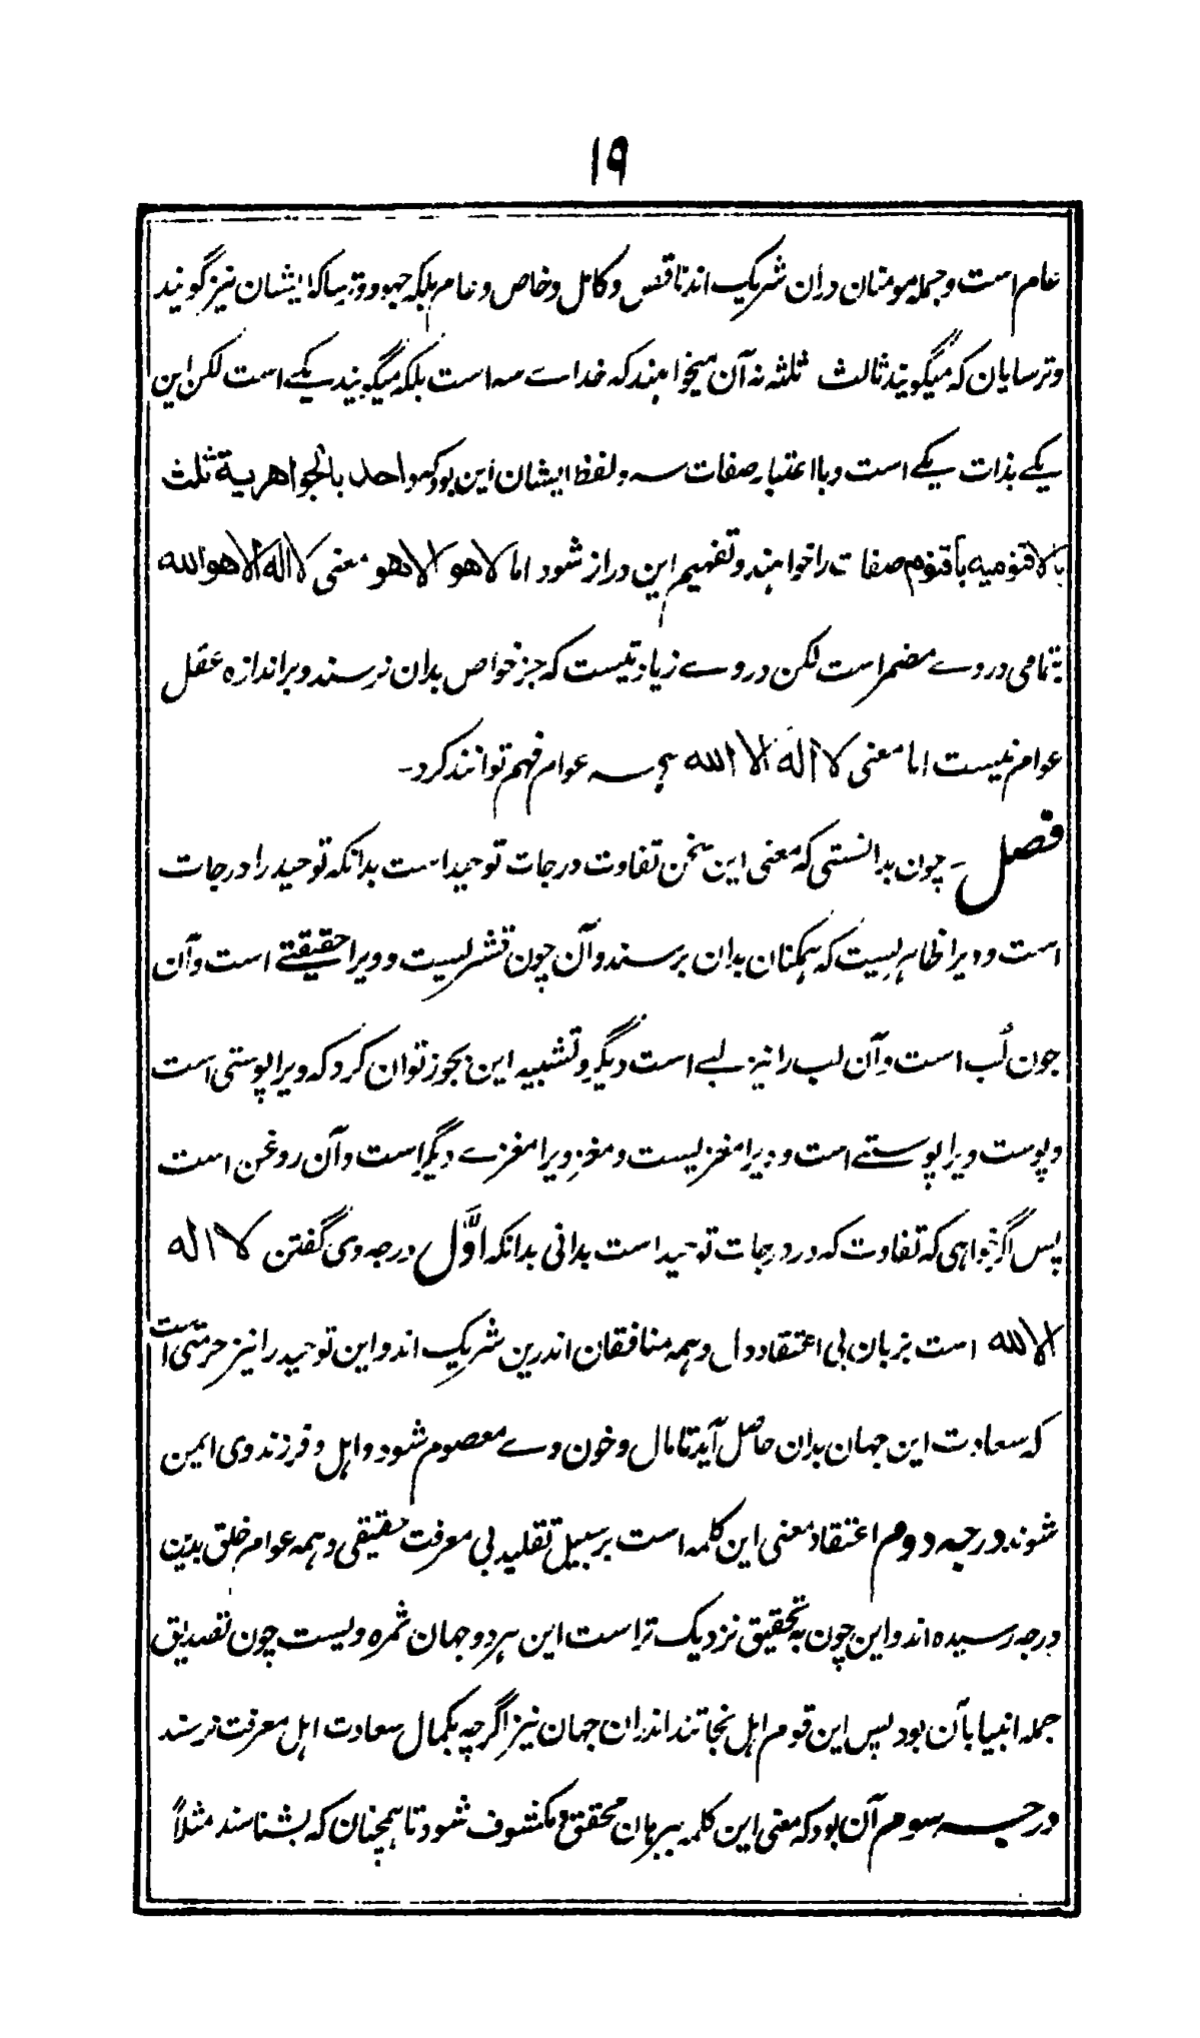 ۱۹
عام است و جمله مومنان در آن شریک اند ناقص و کامل و خاص و عام بلکه جهود و ترسا که ایشان نیز گویند
و ترسایان که میگویند ثالث ثلثه نه آن میخواهند که خداے سه است بلکه میگویند یکے است لکن این
یکے بذات یکے است و با اعتبار صفات سه و لفظ ایشان این بود که واحد بالجواهریة ثلث
بالاقنومیه بأقنوم صفات را خواهند و تفهیم این دراز شود اما لا هو الا هو معنی لا اله الا هو الله
بتمامی در وے مضمر است لکن در وے زیادتیست که جز خواص بدان نرسند و بر اندازه عقل
عوام نیست اما معنی لا اله الا الله همه عوام فهم توانند کرد-
فصل - چون بدانستی که معنی این سخن تفاوت درجات توحید است بدانکه توحید را درجات
است و ویرا ظاهریست که همگنان بدان برسند و آن چون قشریست و ویرا حقیقتے است و آن
چون لُب است و آن لب را نیز لبے است دیگر و تشبیه این بجوز توان کرد که ویرا پوستی است
و پوست ویرا پوستے است و ویرا مغزیست و مغز ویرا مغزے دیگر است و آن روغن است
پس اگر خواهی که تفاوت که در درجات توحید است بدانی بدانکه اوّل درجه وی گفتن لا اله
الا الله است بزبان بی اعتقاد دل و همه منافقان اندرین شریک اند و این توحید را نیز حرمتی است
که سعادت این جهان بدان حاصل آید تا مال و خون وے معصوم شود و اهل و فرزند وی ایمن
شوند درجه دوم اعتقاد معنی این کلمه است بر سبیل تقلید بی معرفت حقیقی و همه عوام خلق بدین
درجه رسیده اند و این چون به تحقیق نزدیک تر است این هر دو جهان ثمره ویست چون تصدیق
جمله انبیا بآن بود پس این قوم اهل نجاتند اندران جهان نیز اگر چه بکمال سعادت اهل معرفت نرسند
درجه سوم آن بود که معنی این کلمه ببرهان محقق و مکشوف شود تا همچنان که بشناسند مثلاً